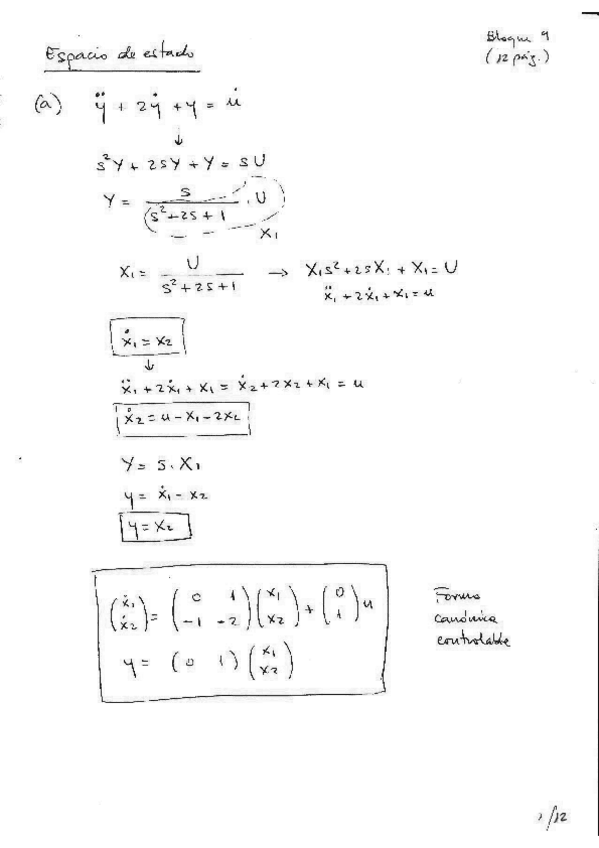 Bloque 9
Espacio de estado
(12 pág.)
(a) ÿ + 2ẏ + y = u̇
↓
s²Y + 2sY + Y = sU
Y = s / (s² + 2s + 1) · U
X₁
X₁ = U / (s² + 2s + 1) → X₁s² + 2sX₁ + X₁ = U
ẍ₁ + 2ẋ₁ + x₁ = u
ẋ₁ = x₂
↓
ẍ₁ + 2ẋ₁ + x₁ = ẋ₂ + 2x₂ + x₁ = u
ẋ₂ = u - x₁ - 2x₂
Y = s · X₁
y = ẋ₁ - x₂
y = x₂
(ẋ₁ ẋ₂) = (0 1 -1 -2) (x₁ x₂) + (0 1) u
y = (0 1) (x₁ x₂)
Forma
canónica
controlable
1/12